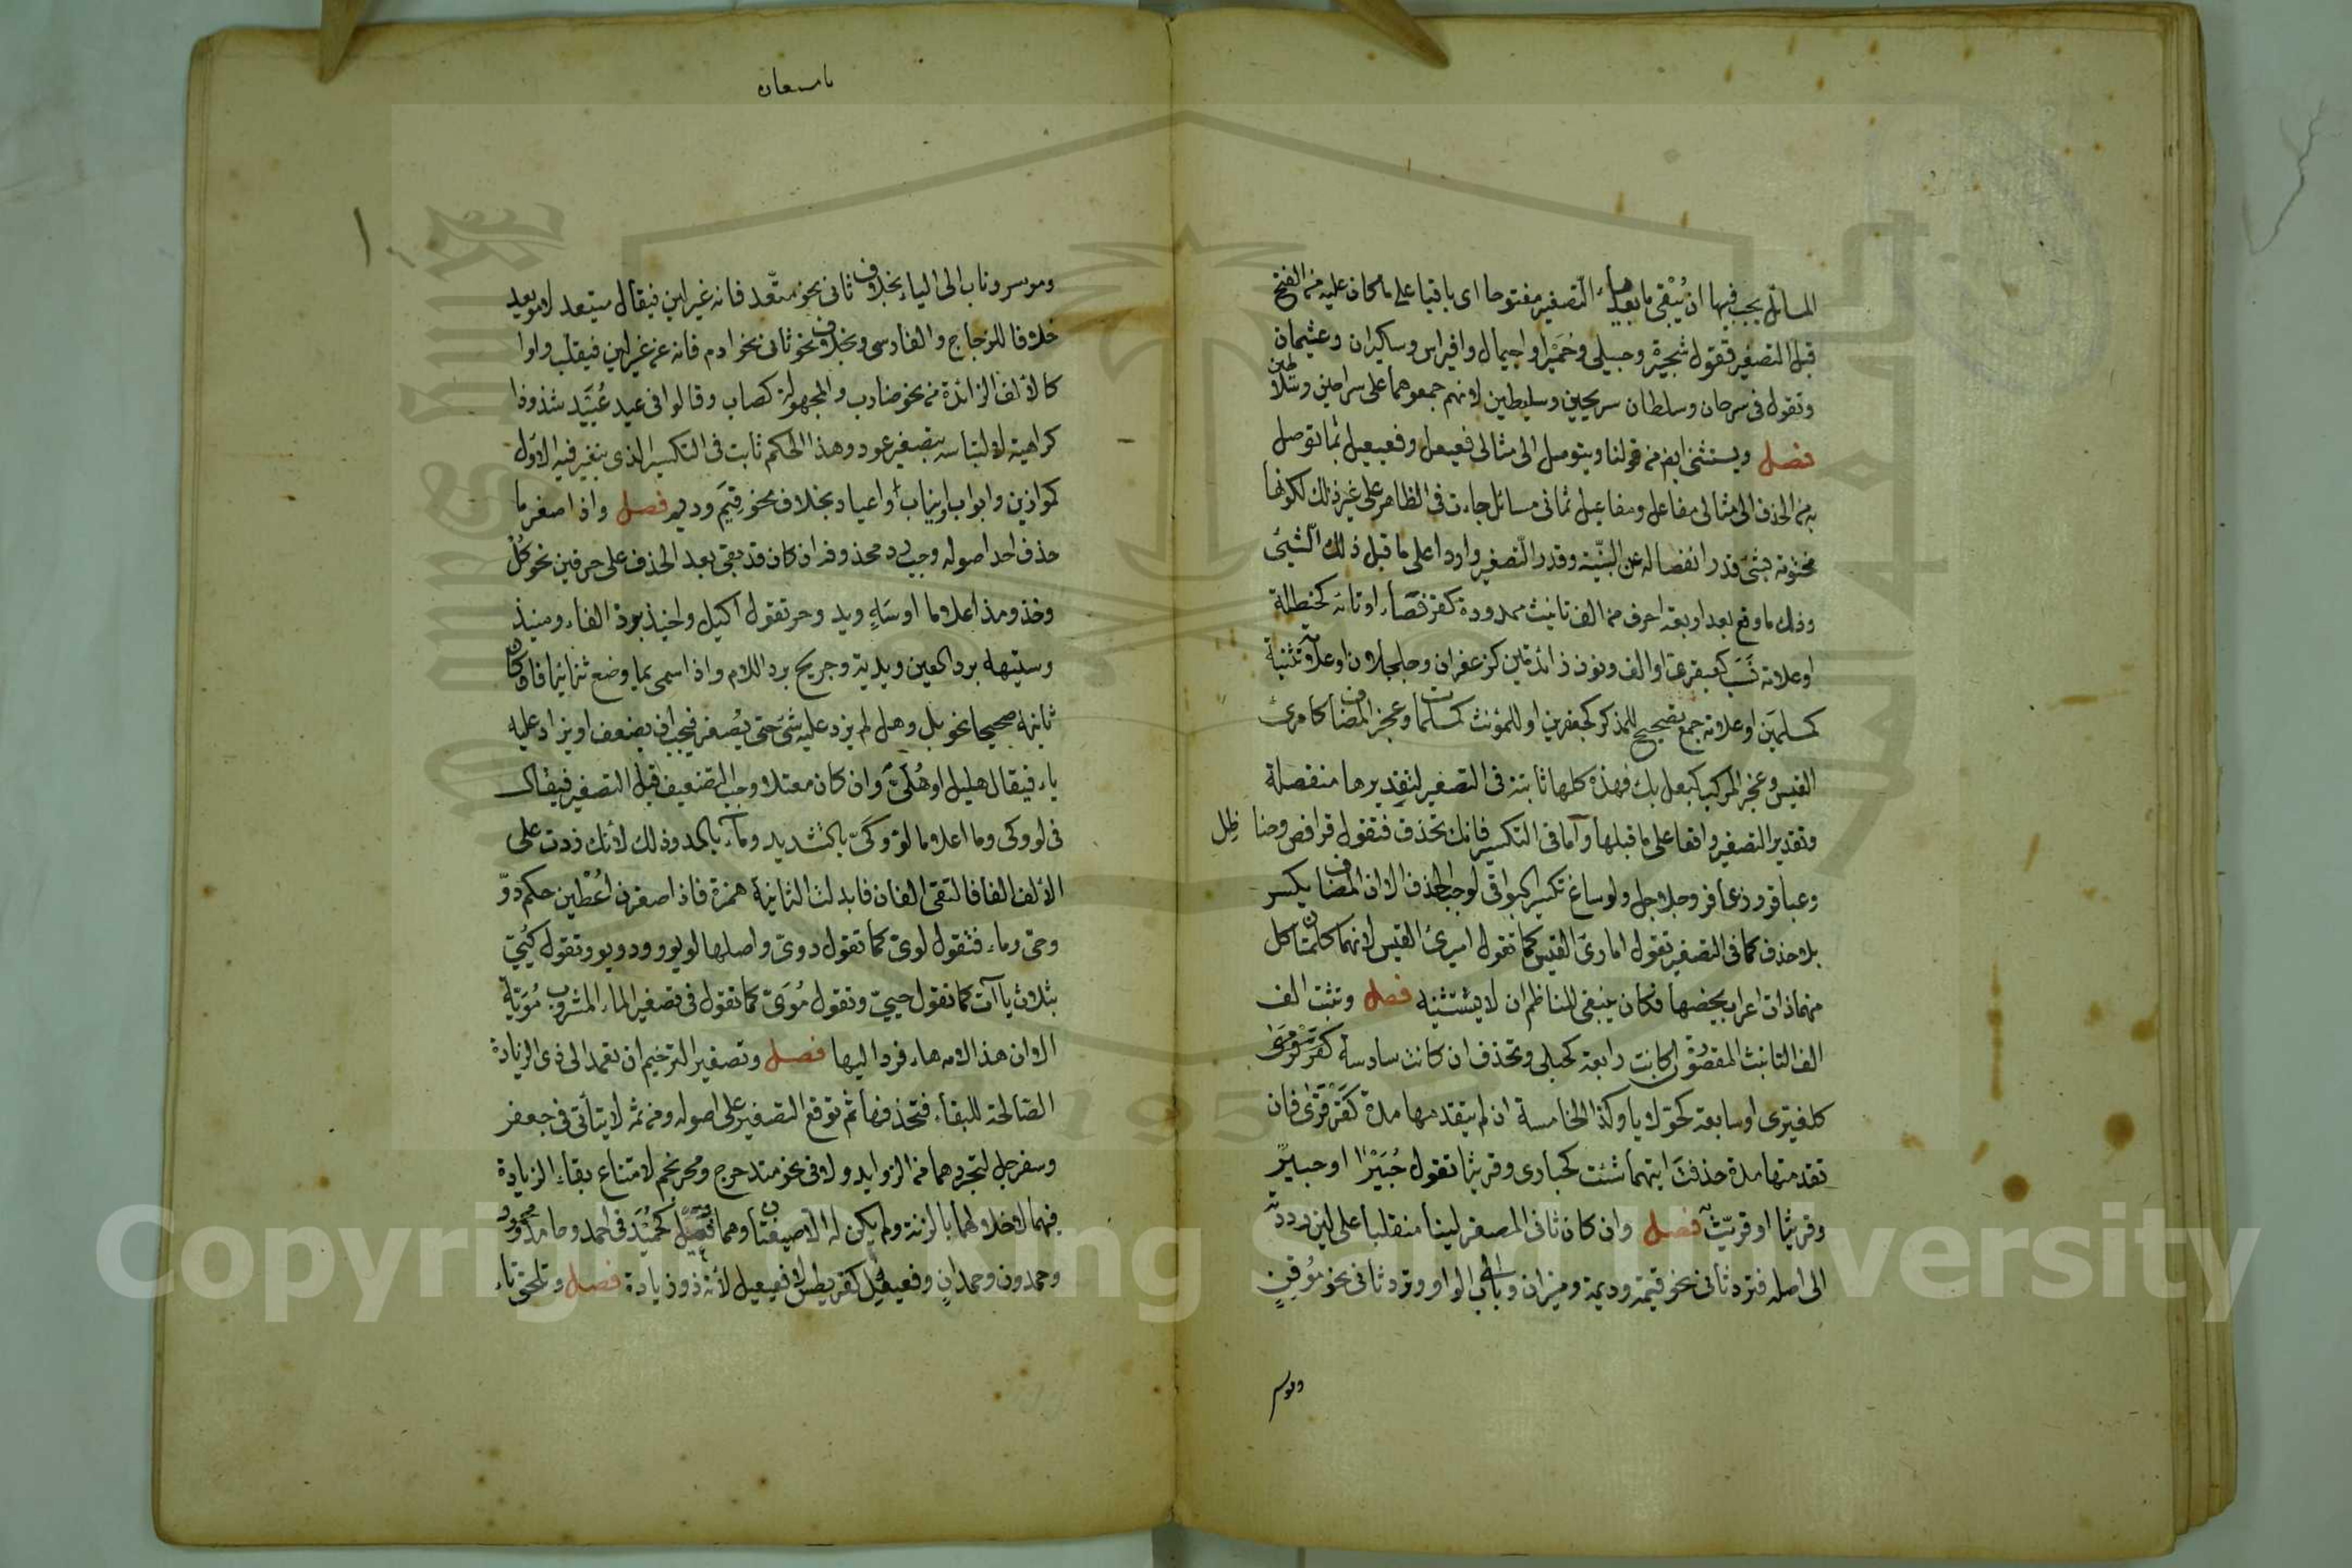 المسائل يجب فيها ان يُبْقى ما بعد ياء التصغير مفتوحا اى باقيا على ما كان عليه من الفتح
قبل التصغير فتقول شجيرة وحبيلى وحُمَيْرا واجيمال وافيراس وسكيران وعثيمان
وتقول فى سرحان وسلطان سريحين وسليطين لانهم جمعوهما على سراحين وسلاطين
فصل ويستثنى ايضا من قولنا ويتوصل الى مثالى فعيعل وفعيعيل بما توصل
به من الحذف الى مثالى مفاعل ومفاعيل ثمانى مسائل جاءت فى الظاهر على غير ذلك لكونها
مختومة بشئ قدر انفصاله عن البنية وقدر التصغير واردا على ما قبل ذلك الشئ
وذلك ما وقع بعد اربعة احرف من الف تانيث ممدودة كقرفصاء او تائه كحنظلة
او علامة نسب كعبقرى او الف ونون زائدتين كزعفران وجلجلان او علامة تثنية
كمسلمَين او علامة جمع تصحيح للمذكر كجعفرين او للمؤنث كمسلمات وعجز المضاف كامرئ
القيس وعجز المركب كبعل بك فهذه كلها ثابتة فى التصغير لتقديرها منفصلة
وتقدير التصغير واقعا على ما قبلها وأما فى التكسير فانك تحذف فتقول قرافص وحنا ظل
وعباقر وزعافر وجلاجل ولو ساغ تكسير البواقى لوجب الحذف الا ان المضاف يكسر
بلا حذف كما فى التصغير تقول امارئ القيس كما تقول اميرئ القيس لانهما كلمتان كل
منهما ذات اعراب يخصها فكان ينبغى للناظم ان لا يستثنيه فصل وتثبت الف
الف التانيث المقصورة ان كانت رابعة كحبلى وتحذف ان كانت سادسة
كلغيزى او سابعة كحولايا وكذا الخامسة ان لم يتقدمها مدة كقرقرى فان
تقدمتها مدة حذفت ايتهما شئت كحبارى وقريثا تقول حُبَيْرا او حبير
وقريثا او قريّث فصل وان كان ثانى المصغر لينا منقلبا على لين رددته
الى اصله فترد ثانى نحو قيمة وديمة وميزان وباب الى الواو وترد ثانى نحو مُوقن
وموسر
وموسر وناب الى الياء بخلاف ثانى نحو متّعد فانه غير لين فيقال متيعد لا مويعد
خلافا للزجاج والفارسى وبخلاف نحو ثانى نحو ادم فانه عن غير لين فيقلب واوا
كالألف الزائدة من نحو ضارب والمجهولة كصاب وقالوا فى عيد عُيَيد شذوذا
كراهية لالتباسه بتصغير عود وهذا الحكم ثابت فى التكسير الذى يتغير فيه الاول
كموازين وابواب وانياب واعياد بخلاف نحو قِيَم وديم فصل واذا صغر ما
حذف احد اصوله وجب رد محذوفه ان كان قد بقى بعد الحذف على حرفين نحو كُل
وخذ ومذ اعلاما او سَهٍ ويد وحر تقول اكيل واخيذ برد الفاء ومنيذ
وستيهة برد العين ويدية وحريح برد اللام واذا سمى بما وضع ثنائيا فان كان
ثانيه صحيحا نحو بل وهل لم يزد عليه شئ حتى يُصغر فيجب ان يضعف او يزاد عليه
ياء فيقال هليل او هُلَىّ وان كان معتلا وجب التضعيف قبل التصغير فيقال
فى لو وكى وما اعلاما لوّ وكَىّ بالتشديد وماء بالمد وذلك لأنك زدت على
الألف الفا فالتقى الفان فابدلت الثانية همزة فاذا صغرن اُعْطين حكم دوّ
وحى وماء فتقول لوىّ كما تقول دوىّ واصلها لويو ودويو وتقول كُيَىّ
بثلاث يا آت كما تقول حييّ وتقول مُوَىّ كما تقول فى تصغير الماء المشروب مُوَيّة
الا ان هذا لامه هاء فردا اليها فصل وتصغير الترخيم ان تعمد الى ذى الزيادة
الصالحة للبقاء فتحذفها ثم توقع التصغير على اصوله ومن ثم لا يتأتى فى جعفر
وسفرجل لتجردهما من الزوايد ولا فى نحو متدحرج ومحرنجم لامتناع بقاء الزيادة
فيهما لاخلالهما بالزنة ولم يكن له الا صيغتان وهما فُعَيل كحُمَيد فى احمد وحامد ومحمود
وحمدون وحمدان وفعيعل كقريطس لا فعيعيل لأنه ذو زيادة فصل وتلحق تاء